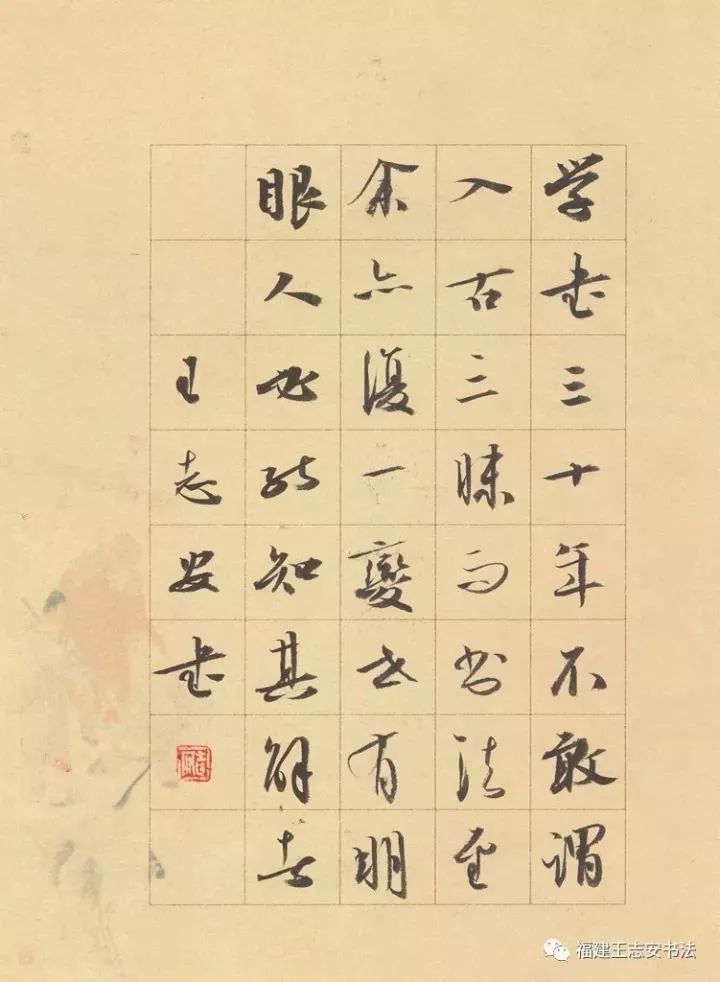 学書三十年不敢謂
入古三昧而书法至
余亦復一變世有明
眼人必能知其解者
王志安書
福建王志安书法